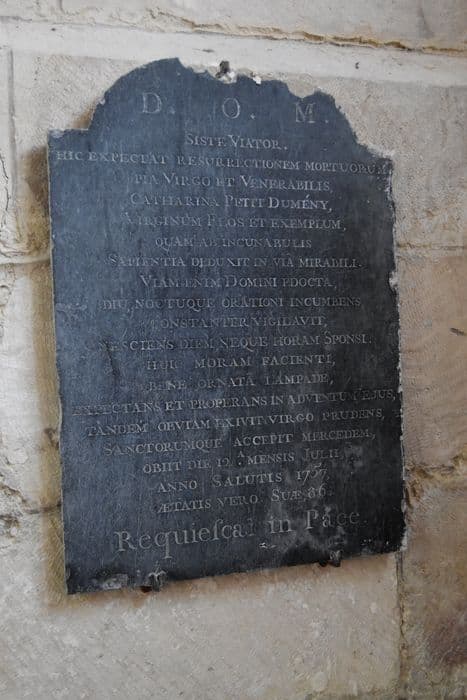 D. O. M.
SISTE VIATOR.
HIC EXPECTAT RESURRECTIONEM MORTUORUM
PIA VIRGO ET VENERABILIS,
CATHARINA PETIT DUMÉNY,
VIRGINUM FLOS ET EXEMPLUM,
QUAM AB INCUNABULIS
SAPIENTIA DEDUXIT IN VIA MIRABILI.
VIAM ENIM DOMINI EDOCTA,
DIU, NOCTUQUE ORATIONI INCUMBENS,
CONSTANTER VIGILAVIT,
NESCIENS DIEM NEQUE HORAM SPONSI.
HUIC MORAM FACIENTI,
BENE ORNATA LAMPADE,
EXPECTANS ET PROPERANS IN ADVENTUM EJUS,
TANDEM OBVIAM EXIVIT VIRGO PRUDENS,
SANCTORUMQUE ACCEPIT MERCEDEM,
OBIIT DIE 12.A MENSIS JULII,
ANNO SALUTIS 1757,
ÆTATIS VERO SUÆ 86.
Requiescat in Pace.